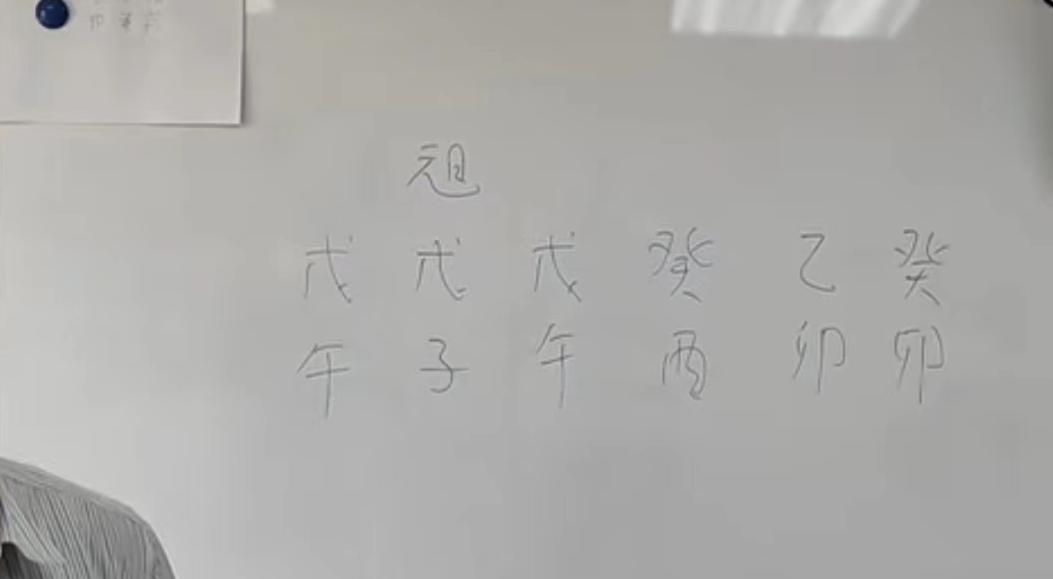 戊 戊 戊 癸 乙 癸
午 子 午 酉 卯 卯